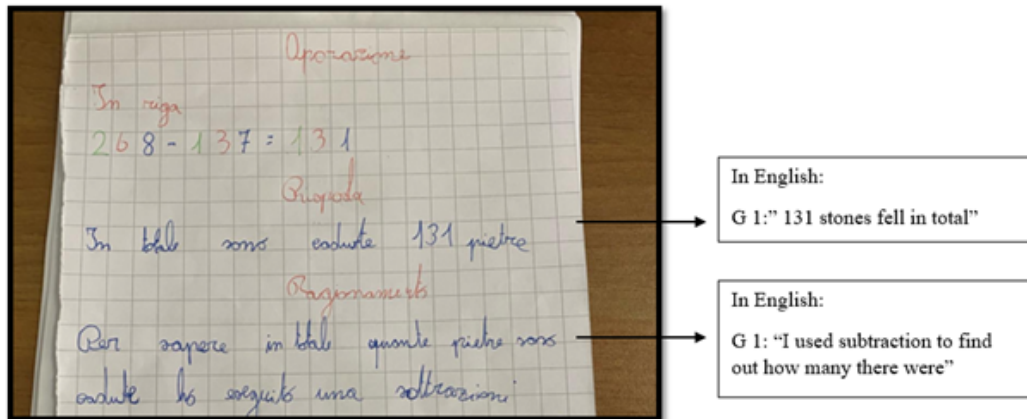 Operazione
In riga
268-137=131
Risposta
In totale sono cadute 131 pietre
Ragionamento
Per sapere in totale quante pietre sono
cadute ho eseguito una sottrazioni
In English:
G 1:” 131 stones fell in total”
In English:
G 1: “I used subtraction to find
out how many there were”